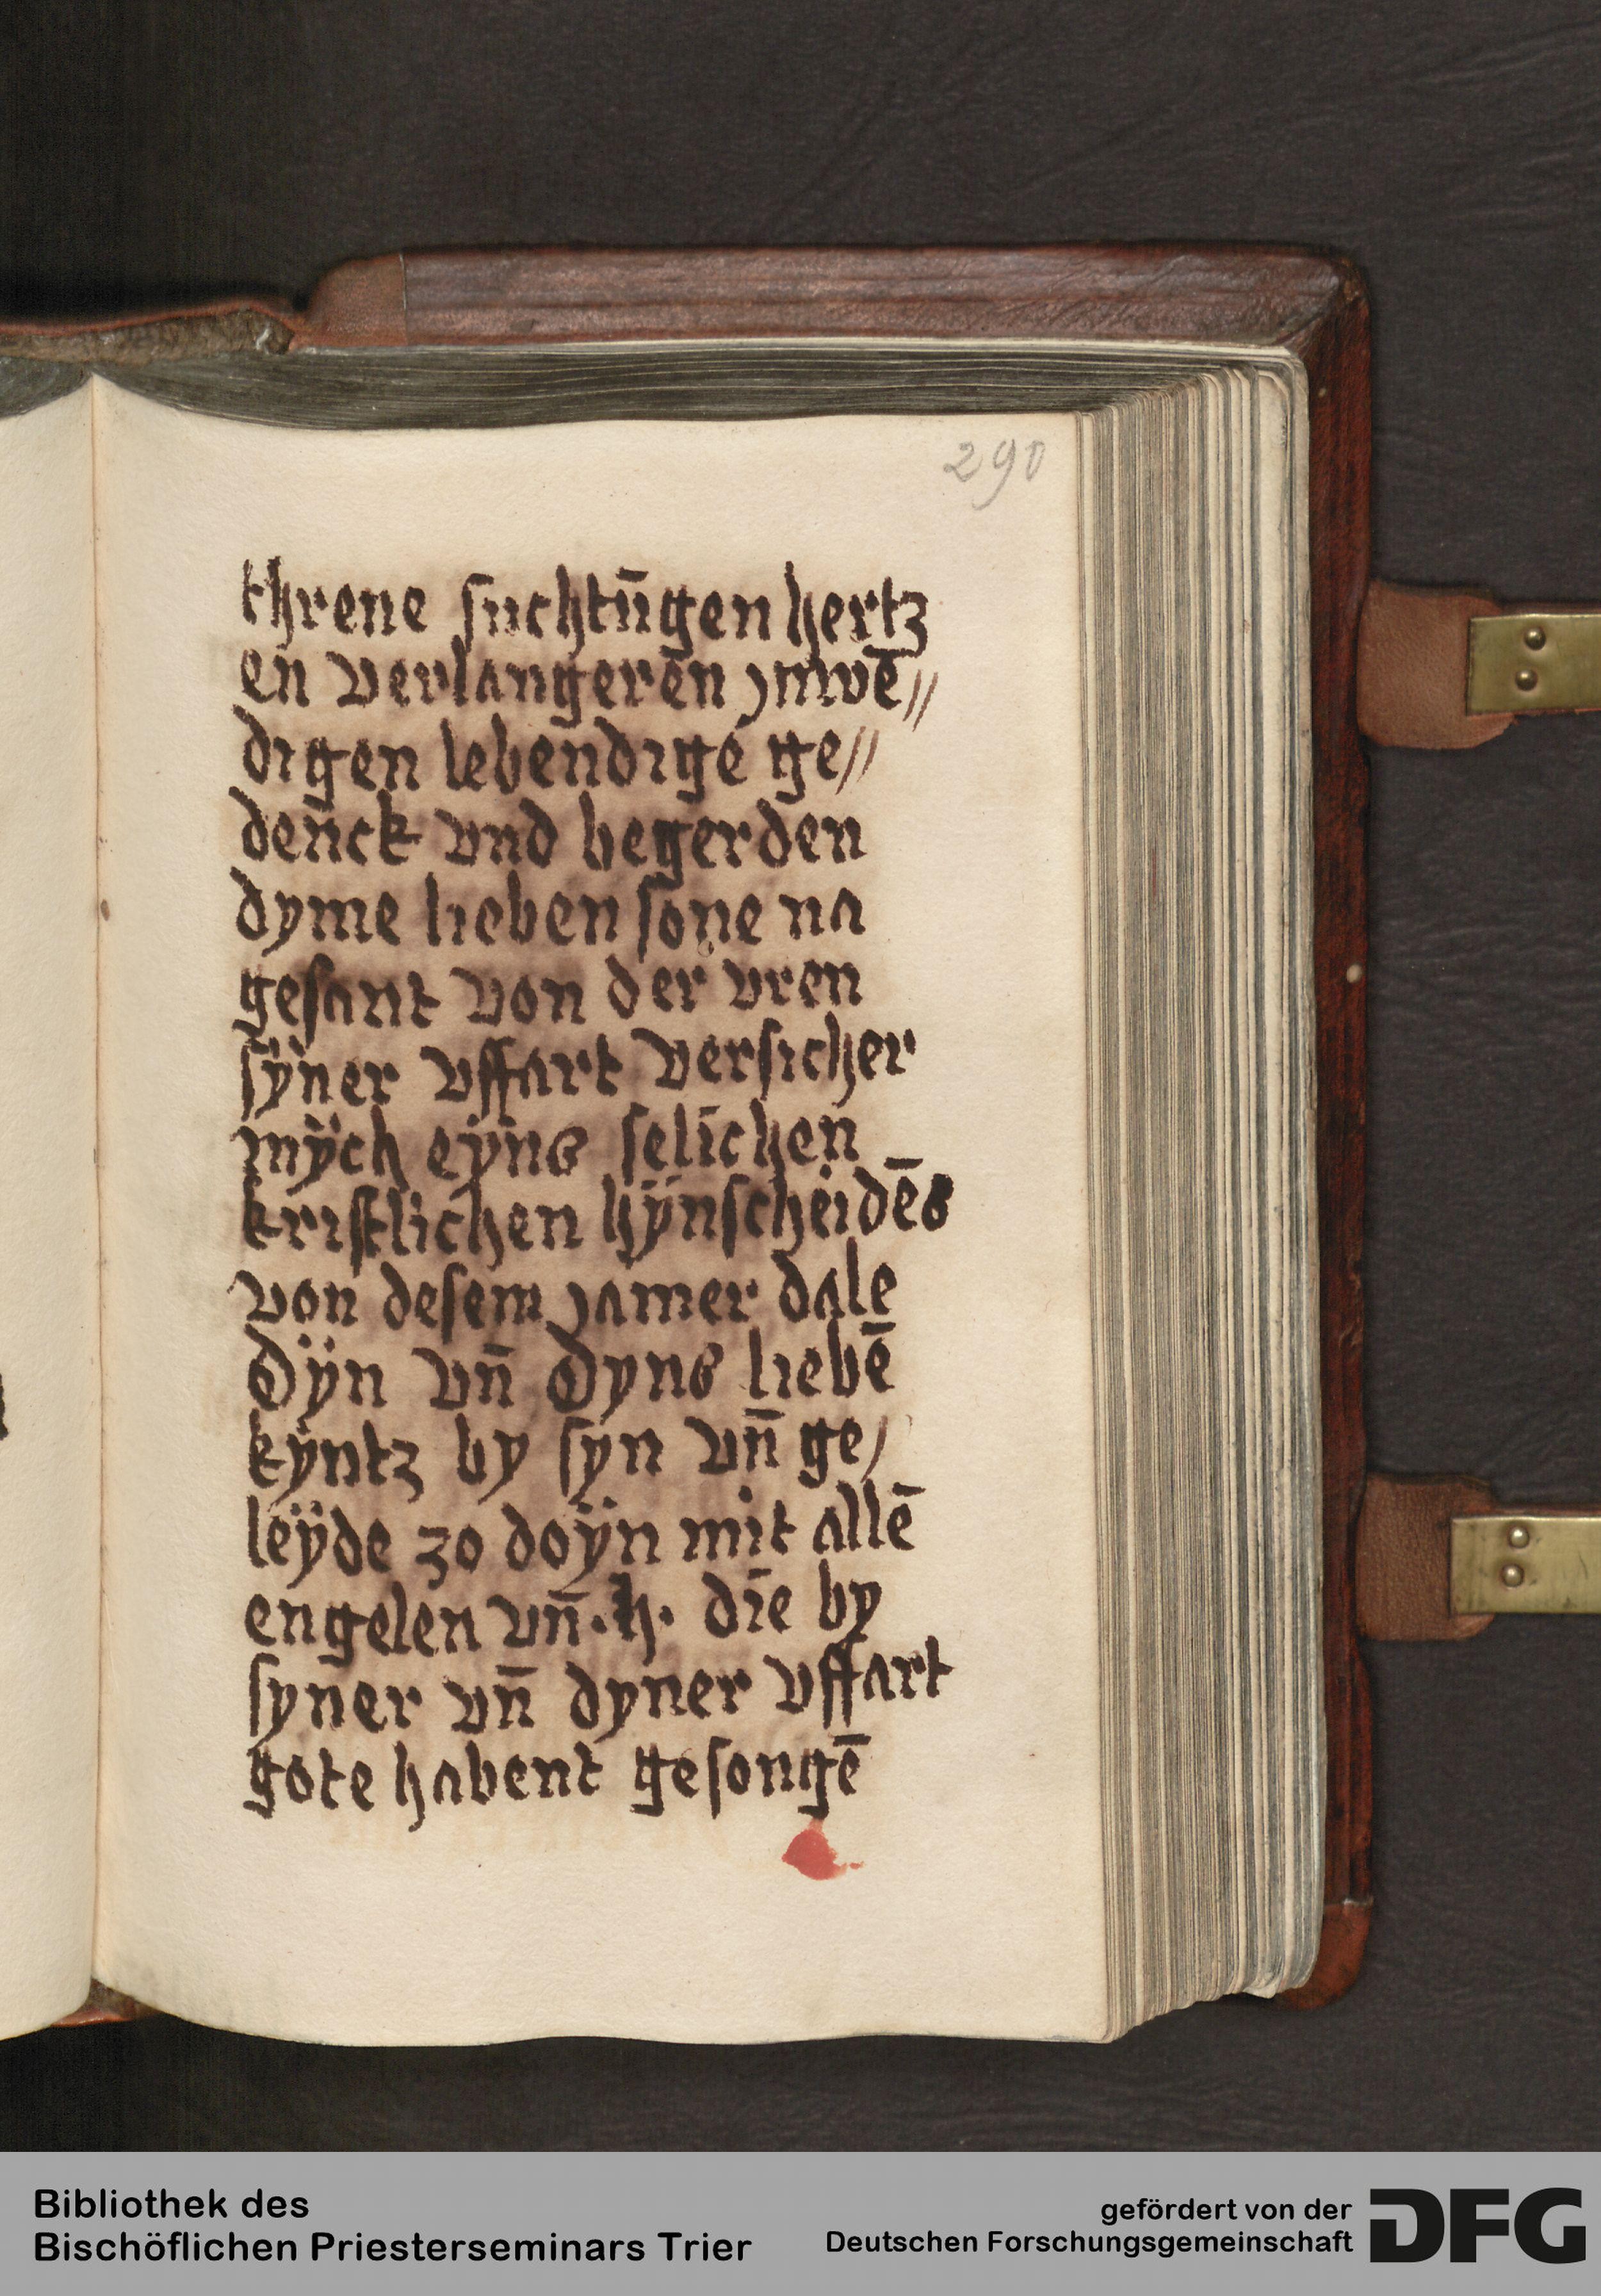 290
threne suchtūgen hertz
en verlangeren jnwē//
digen lebendige ge//
denck vnd begerden
dyme lieben sone na
gesant von der vren
sÿner vffart versicher
mÿch eÿns selichen
kristlichen hÿnscheidēs
von desem jamer dale
Dÿn vn̄ Dyns liebē
kÿntz by sÿn vn̄ ge/
leÿde zo doÿn mit allē
engelen vn̄ .h. die by
syner vn̄ dyner vffart
gote habent gesongē
Bibliothek des
Bischöflichen Priesterseminars Trier
gefördert von der
Deutschen Forschungsgemeinschaft
DFG